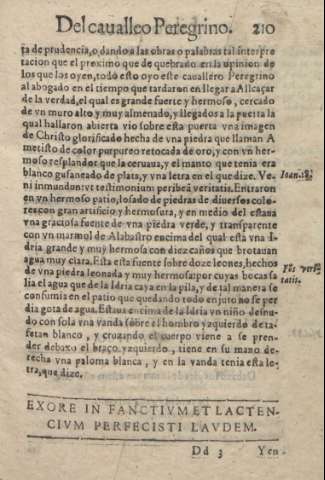 Del cauallero Peregrino. 210
ta de prudencia, o dando a las obras o palabras tal interpre
tacion que el proximo que de quebrado en la opinion de
los que los oyen, todo esto oyo este cauallero Peregrino
al abogado en el tiempo que tardaron en llegar a Alcaçar
de la verdad, el qual es grande fuerte y hermoso, cercado
de vn muro alto y muy almenado, y llegados a la puerta la
qual hallaron abierta vio sobre esta puerta vna imagen
de Christo glorificado hecha de vna piedra que llaman A
metisto de color purpureo retocada de oro, y con vn her-
moso resplandor que la cercaua, y el manto que tenia era
blanco gusaneado de plata, y vna letra en el que dize. Ve
ni inmundon: vt testimonium peribeã veritatis. Entraron
en vn hermoso patio, losado de piedras de diuersos colo-
res con gran artificio y hermosura, y en medio del estaua
vna graciosa fuente de vna piedra verde, y transparente
con vn marmol de Alabastro encima del qual esta vna I-
dria grande y muy hermosa con diez caños que brotauan
agua muy clara. Esta esta fuente sobre doze leones, hechos
de vna piedra leonada y muy hermosa: por cuyas bocas sa
lia el agua que de la Idria caya en la pila, y de tal manera se
consumia en el patio que quedando todo enjuto no se per
dia gota de agua. Estaua encima de la Idria vn niño desnu-
do con sola vna vanda sobre el hombro yzquierdo de ta-
fetan blanco, y cruzando el cuerpo viene a se pren-
der debaxo el braço yzquierdo, tiene en su mano de-
recha vna paloma blanca, y en la vanda tenia esta le-
tra, que dize.
Ioan. 18
Fõs veri-
tatis.
EXORE IN FANCTIVM ET LACTEN-
CIVM PERFECISTI LAVDEM.
Dd 3 Yen